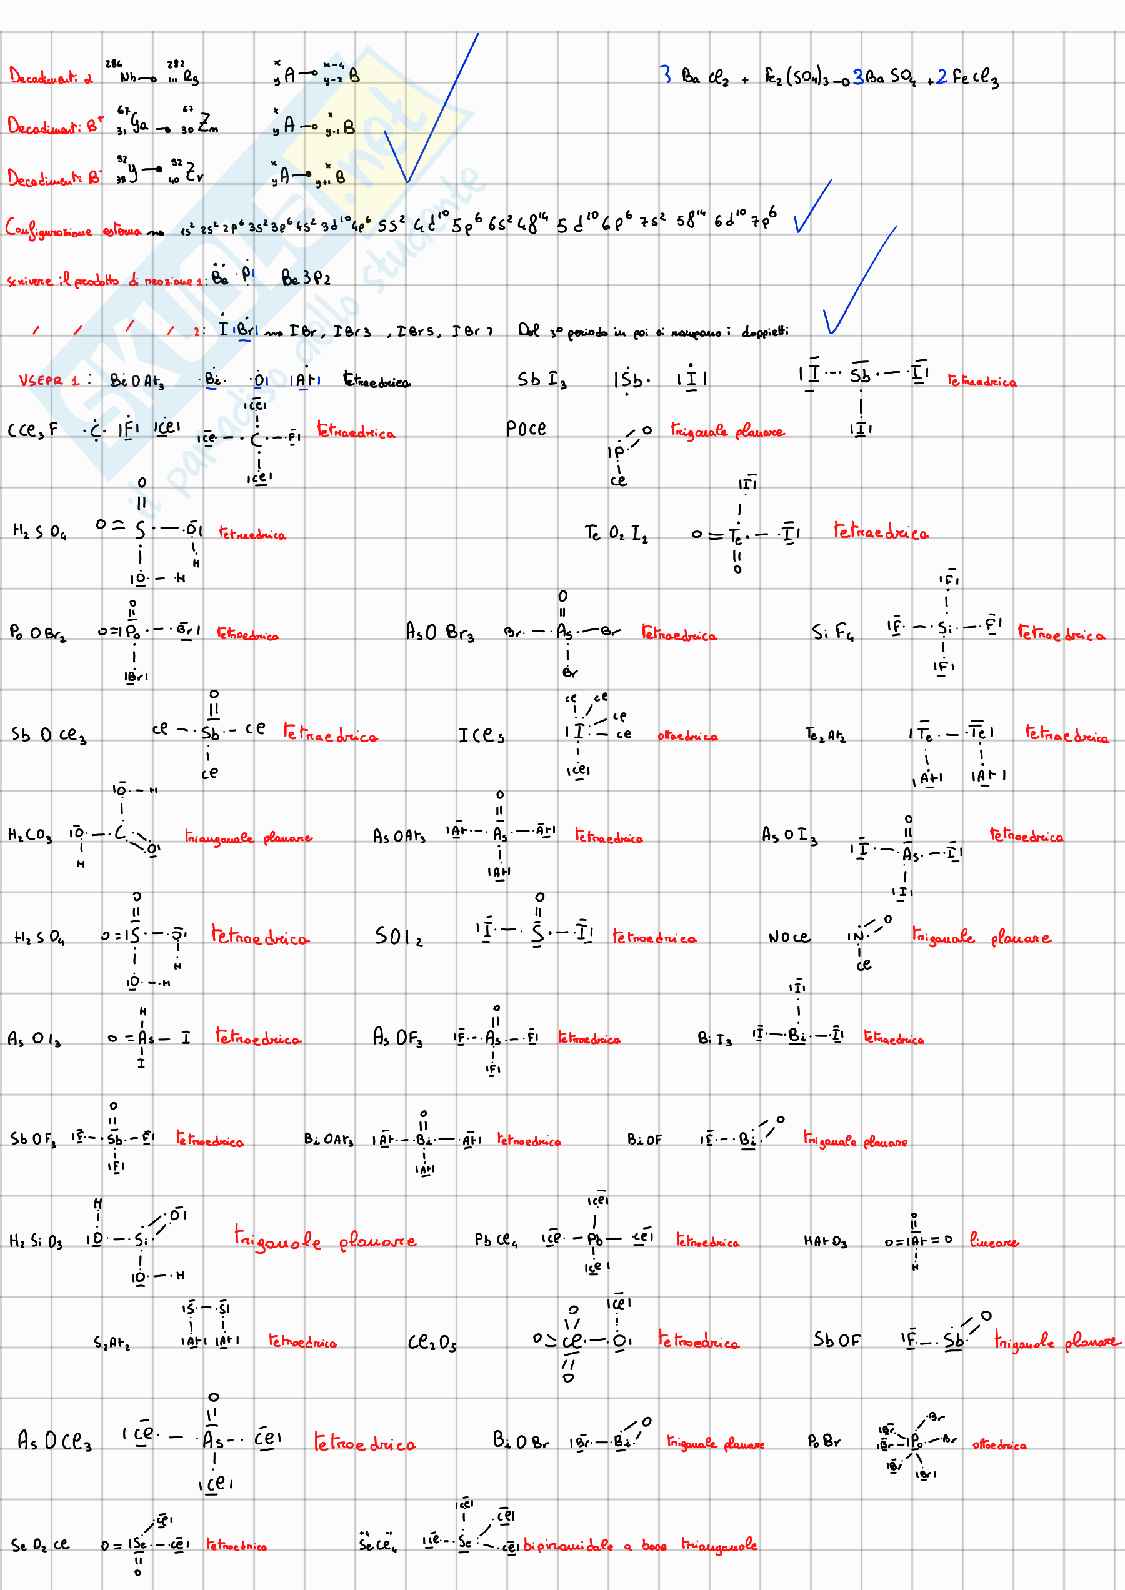 Decadimenti α ²⁸⁶Nh → ²⁸²₁₁₁Rg ˣᵧA → ˣ⁻⁴ᵧ₋₂B 3 BaCl₂ + Fe₂(SO₄)₃ → 3BaSO₄ + 2FeCl₃
Decadimenti B⁺ ⁶⁷₃₁Ga → ⁶⁷₃₀Zn ˣᵧA → ˣᵧ₋₁B
Decadimenti B⁻ ⁹²₃₉Y → ⁹²₄₀Zr ˣᵧA → ˣᵧ₊₁B
Configurazione esterna → 1s² 2s² 2p⁶ 3s² 3p⁶ 4s² 3d¹⁰ 4p⁶ 5s² 4d¹⁰ 5p⁶ 6s² 4f¹⁴ 5d¹⁰ 6p⁶ 7s² 5f¹⁴ 6d¹⁰ 7p⁶
scrivere il prodotto di reazione 1: Be P Be3P2
/ / / / 2: I Br → IBr, IBr3, IBr5, IBr7 Dal 3° periodo in poi si rompono i doppietti
VSEPR 1: BiOAt₃ Bi O At tetraedrica SbI₃ Sb I I Sb I I tetraedrica
CCl₃F C F Cl Cl Cl C F Cl tetraedrica POCl P O Cl trigonale planare
H₂SO₄ O O S O H O H tetraedrica TeO₂I₂ I O Te I O tetraedrica
PoOBr₂ O O Po Br Br tetraedrica AsOBr₃ O Br As Br Br tetraedrica SiF₄ F F Si F F tetraedrica
SbOCl₃ O Cl Sb Cl Cl tetraedrica ICl₅ Cl Cl Cl I Cl Cl ottaedrica Te₂At₂ Te Te At At tetraedrica
H₂CO₃ O H O C O H triangonale planare AsOAt₃ O At As At At tetraedrica AsOI₃ O I As I I tetraedrica
H₂SO₄ O O S O H O H tetraedrica SOI₂ O I S I tetraedrica NOCl N O Cl trigonale planare
AsOI₃ H O As I I tetraedrica AsOF₃ O F As F F tetraedrica BiI₃ I I Bi I tetraedrica
SbOF₃ O F Sb F F tetraedrica BiOAt₃ O At Bi At At tetraedrica BiOF F Bi O trigonale planare
H₂SiO₃ H O Si O O H trigonale planare PbCl₄ Cl Cl Pb Cl Cl tetraedrica HAtO₃ O O At O H lineare
S₂At₂ S S At At tetraedrica Cl₂O₅ O O Cl O O Cl tetraedrica SbOF F Sb O trigonale planare
AsOCl₃ O Cl As Cl Cl tetraedrica BiOBr Br Bi O trigonale planare PoBr Br Br Br Po Br Br Br ottaedrica
SeO₂Cl O Se Cl Cl O tetraedrica SeCl₄ Cl Cl Cl Se Cl bipiramidale a base triangonale
SKUOLA.net
il paradiso dello studente